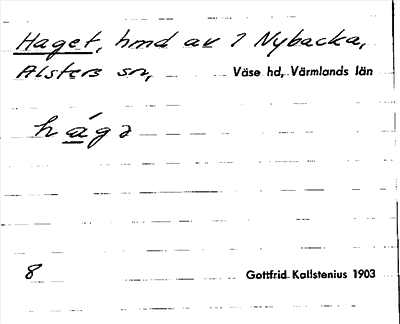 Haget, hmd av 1 Nybacka,
Alsters sn, Väse hd, Värmlands län
há̱gə
8 Gottfrid Kallstenius 1903